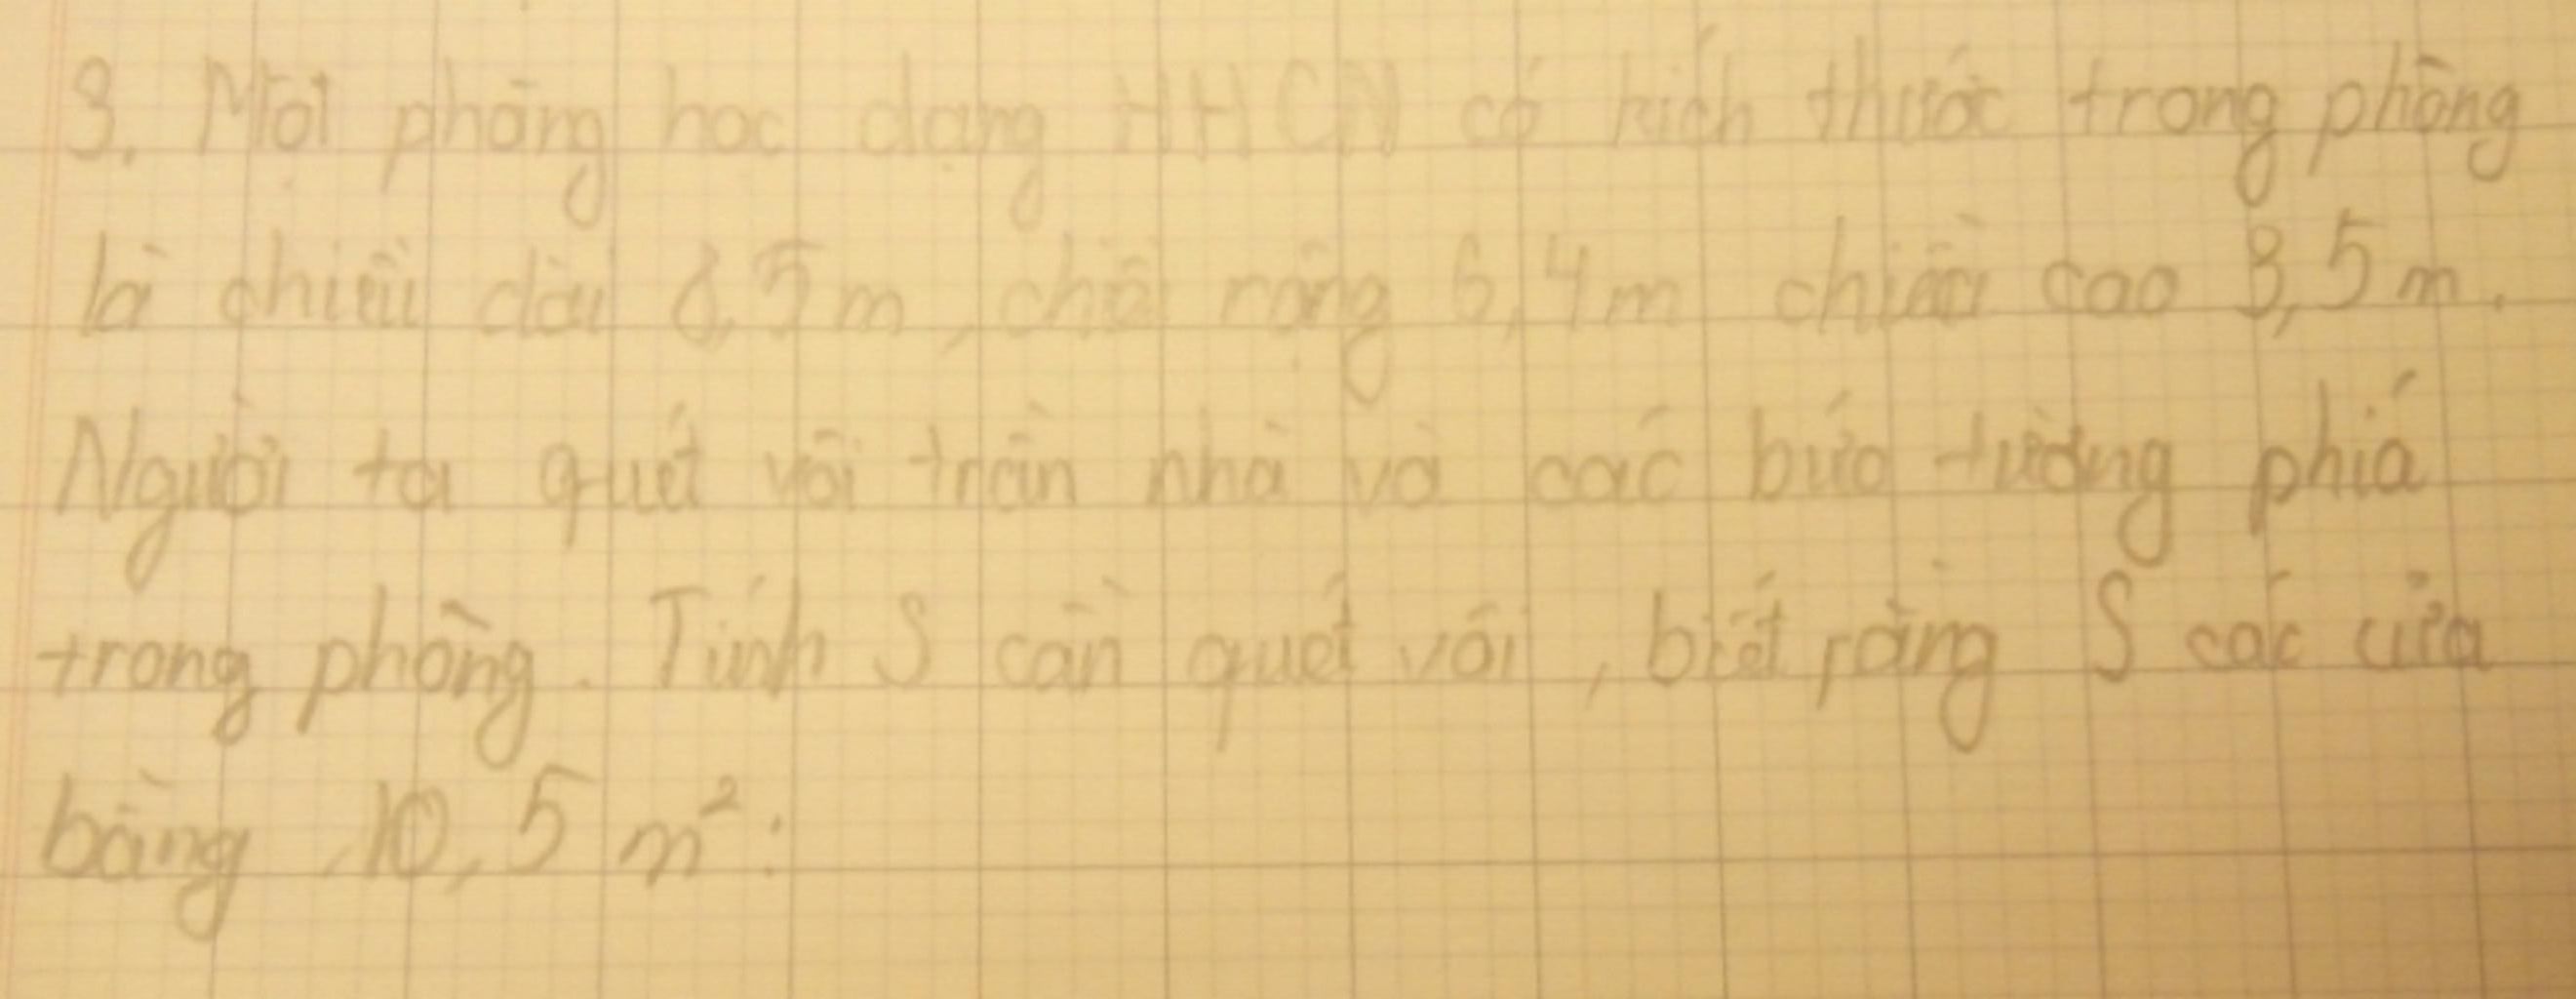 3. Một phòng học dạng HHCN có kích thước trong phòng
là chiều dài 8,5m, chiề rộng 6,4m chiều cao 3,5m.
Người ta quét vôi trần nhà và các bức tường phía
trong phòng. Tính S cần quét vôi, biết rằng S các cửa
bằng 10,5 m²: